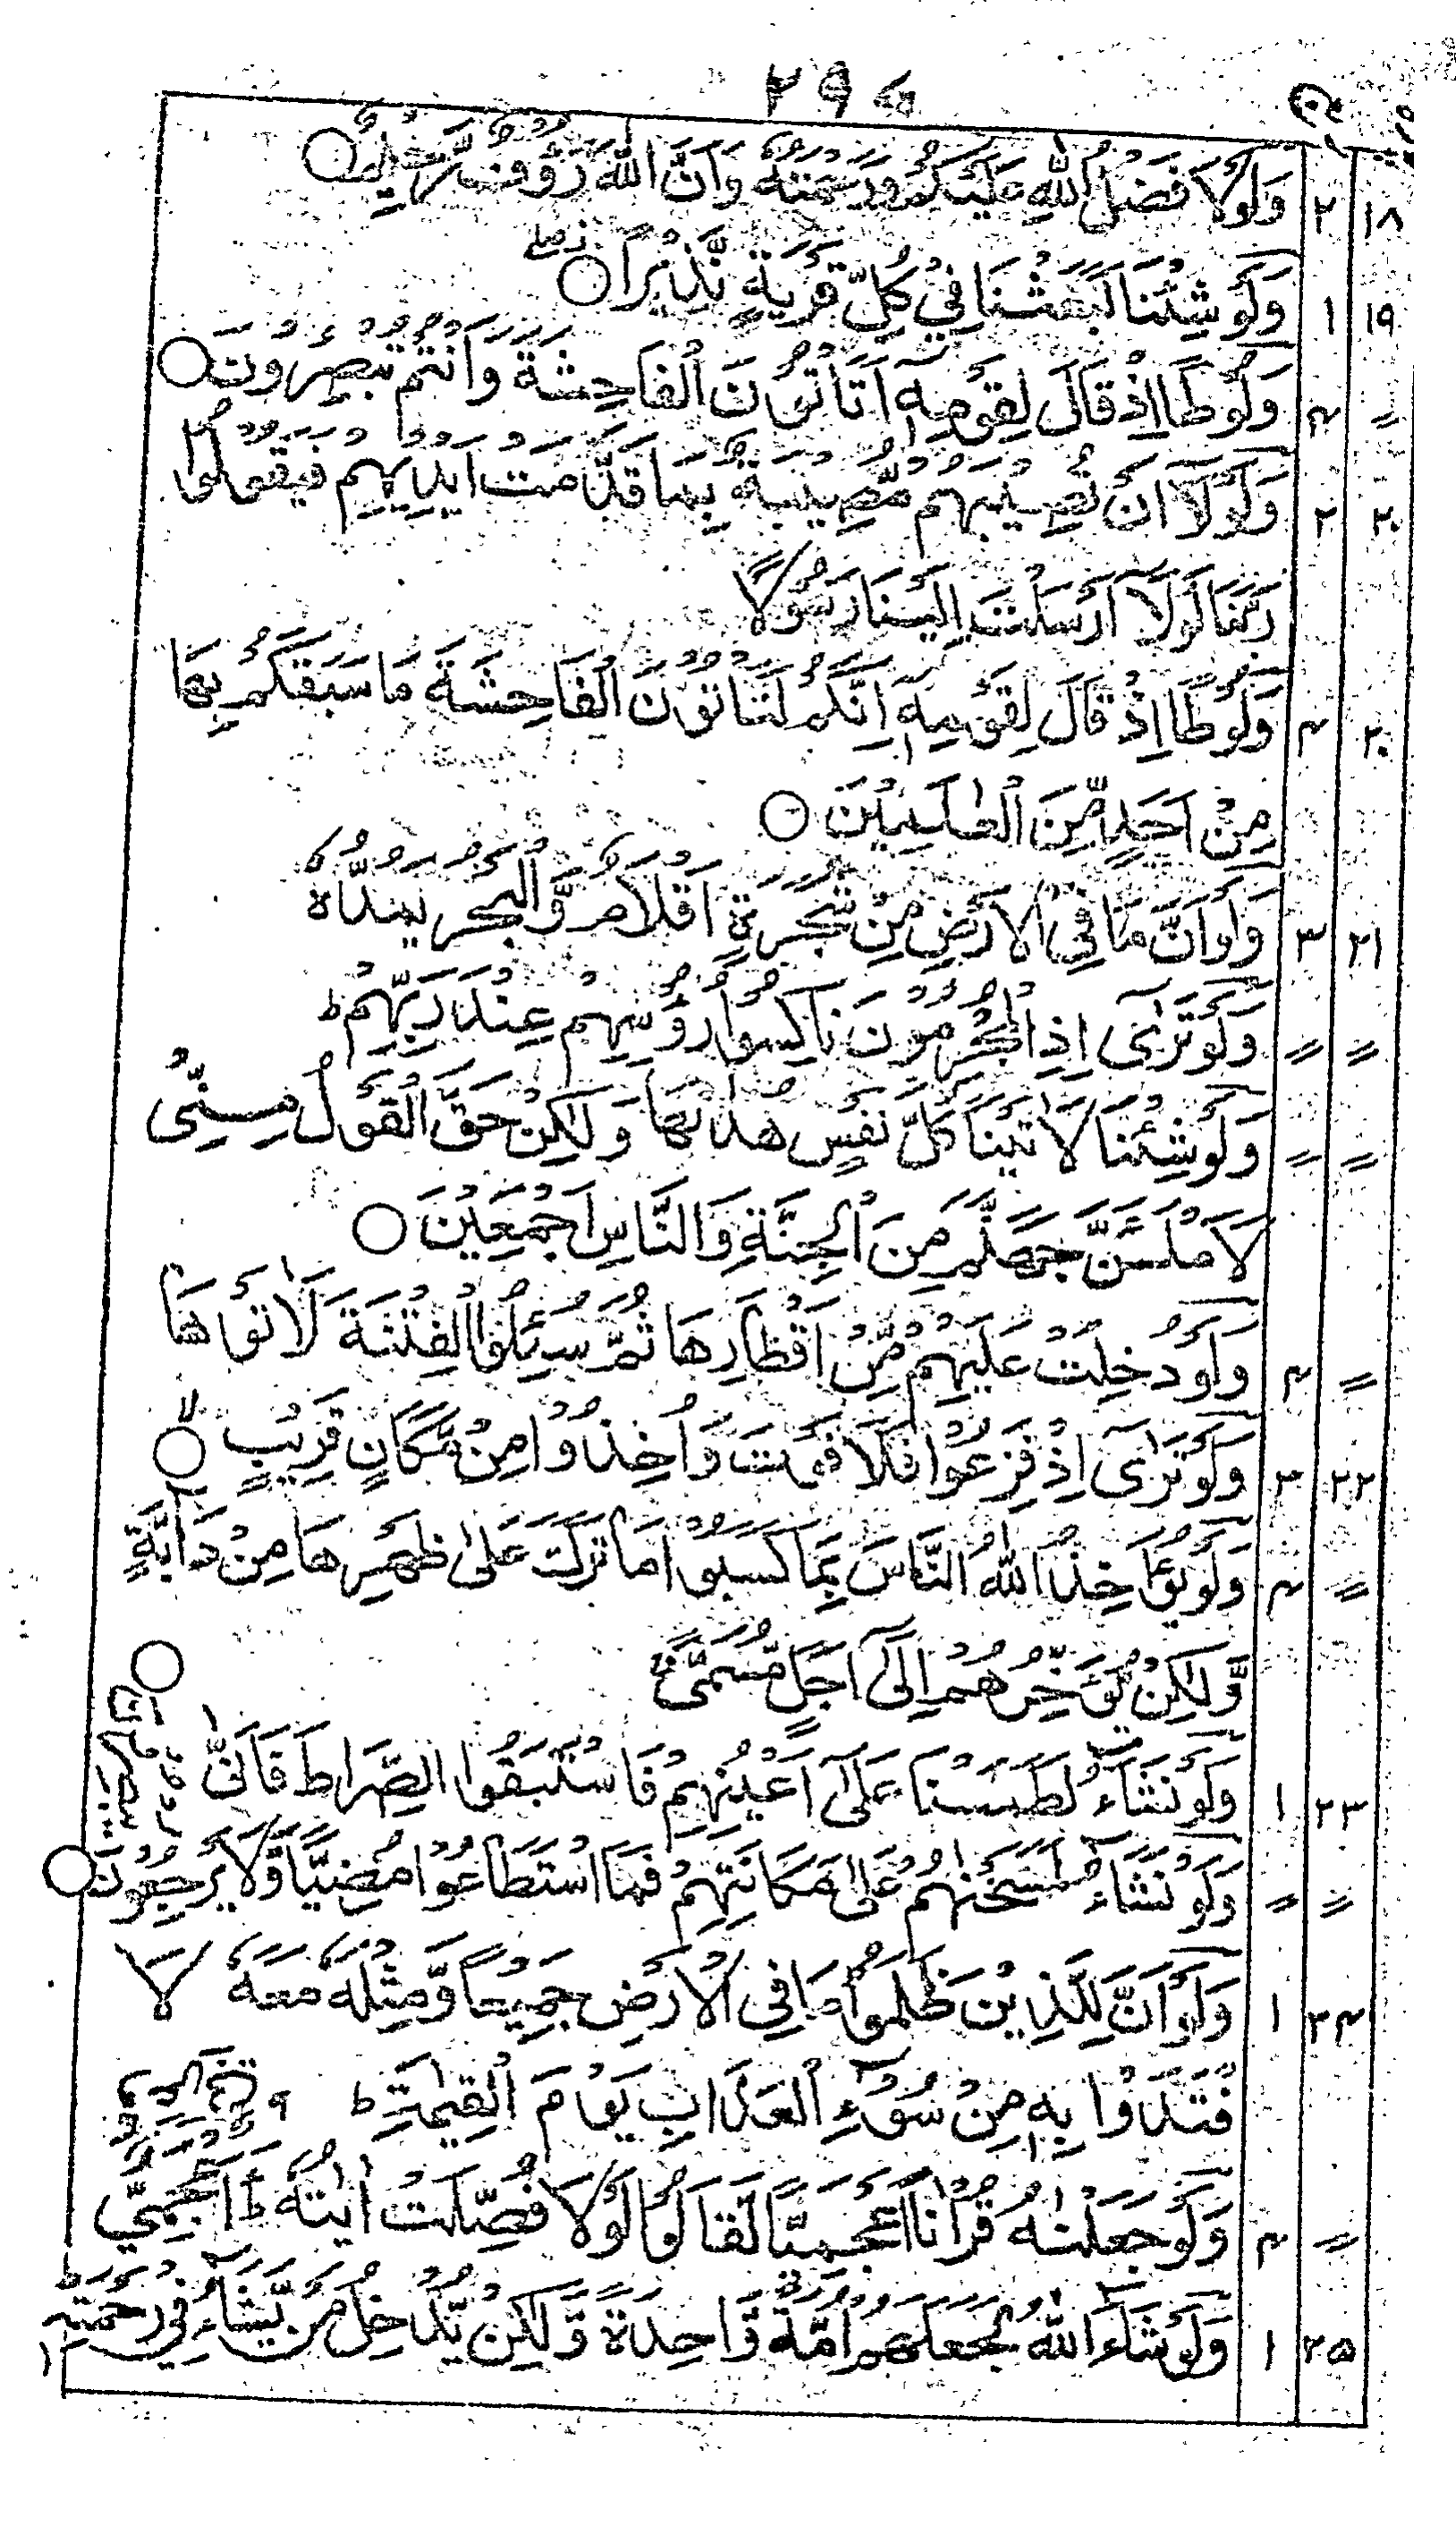 ۲۹۵
۱۸ ۲ وَلَوْلَا فَضْلُ اللّٰهِ عَلَيْكُمْ وَرَحْمَتُهٗ وَاَنَّ اللّٰهَ رَءُوْفٌ رَّحِيْمٌ ○
۱۹ ۱ وَلَوْ شِئْنَا لَبَعَثْنَا فِيْ كُلِّ قَرْيَةٍ نَّذِيْرًا ○
〃 ۴ وَلُوْطًا اِذْ قَالَ لِقَوْمِهٖٓ اَتَاْتُوْنَ الْفَاحِشَةَ وَاَنْتُمْ تُبْصِرُوْنَ ○
۲۰ ۲ وَلَوْلَآ اَنْ تُصِيْبَهُمْ مُّصِيْبَةٌۢ بِمَا قَدَّمَتْ اَيْدِيْهِمْ فَيَقُوْلُوْا
رَبَّنَا لَوْلَآ اَرْسَلْتَ اِلَيْنَا رَسُوْلًا
۲۰ ۴ وَلُوْطًا اِذْ قَالَ لِقَوْمِهٖٓ اِنَّكُمْ لَتَاْتُوْنَ الْفَاحِشَةَ مَا سَبَقَكُمْ بِهَا
مِنْ اَحَدٍ مِّنَ الْعٰلَمِيْنَ ○
۲۱ ۳ وَلَوْ اَنَّ مَا فِي الْاَرْضِ مِنْ شَجَرَةٍ اَقْلَامٌ وَّالْبَحْرُ يَمُدُّهٗ
〃 〃 وَلَوْ تَرٰٓى اِذِ الْمُجْرِمُوْنَ نَاكِسُوْا رُءُوْسِهِمْ عِنْدَ رَبِّهِمْ ط
〃 〃 وَلَوْ شِئْنَا لَاٰتَيْنَا كُلَّ نَفْسٍ هُدٰىهَا وَلٰكِنْ حَقَّ الْقَوْلُ مِنِّيْ
لَاَمْلَـَٔنَّ جَهَنَّمَ مِنَ الْجِنَّةِ وَالنَّاسِ اَجْمَعِيْنَ ○
〃 ۴ وَلَوْ دُخِلَتْ عَلَيْهِمْ مِّنْ اَقْطَارِهَا ثُمَّ سُئِلُوا الْفِتْنَةَ لَاٰتَوْهَا
۲۲ ۳ وَلَوْ تَرٰٓى اِذْ فَزِعُوْا فَلَا فَوْتَ وَاُخِذُوْا مِنْ مَّكَانٍ قَرِيْبٍ لا ○
〃 ۴ وَلَوْ يُؤَاخِذُ اللّٰهُ النَّاسَ بِمَا كَسَبُوْا مَا تَرَكَ عَلٰى ظَهْرِهَا مِنْ دَآبَّةٍ
وَّلٰكِنْ يُّؤَخِّرُهُمْ اِلٰٓى اَجَلٍ مُّسَمًّى ج ○
۲۳ ۱ وَلَوْ نَشَآءُ لَطَمَسْنَا عَلٰٓى اَعْيُنِهِمْ فَاسْتَبَقُوا الصِّرَاطَ فَاَنّٰى يُبْصِرُوْنَ
〃 〃 وَلَوْ نَشَآءُ لَمَسَخْنٰهُمْ عَلٰى مَكَانَتِهِمْ فَمَا اسْتَطَاعُوْا مُضِيًّا وَّلَا يَرْجِعُوْنَ ○
۲۴ ۱ وَلَوْ اَنَّ لِلَّذِيْنَ ظَلَمُوْا مَا فِي الْاَرْضِ جَمِيْعًا وَّمِثْلَهٗ مَعَهٗ لَا
فْتَدَوْا بِهٖ مِنْ سُوْٓءِ الْعَذَابِ يَوْمَ الْقِيٰمَةِ ط
〃 ۴ وَلَوْ جَعَلْنٰهُ قُرْاٰنًا اَعْجَمِيًّا لَّقَالُوْا لَوْلَا فُصِّلَتْ اٰيٰتُهٗ ط ءَاَعْجَمِيٌّ وَّعَرَبِيٌّ
۲۵ ۱ وَلَوْ شَآءَ اللّٰهُ لَجَعَلَهُمْ اُمَّةً وَّاحِدَةً وَّلٰكِنْ يُّدْخِلُ مَنْ يَّشَآءُ فِيْ رَحْمَتِهٖ ط